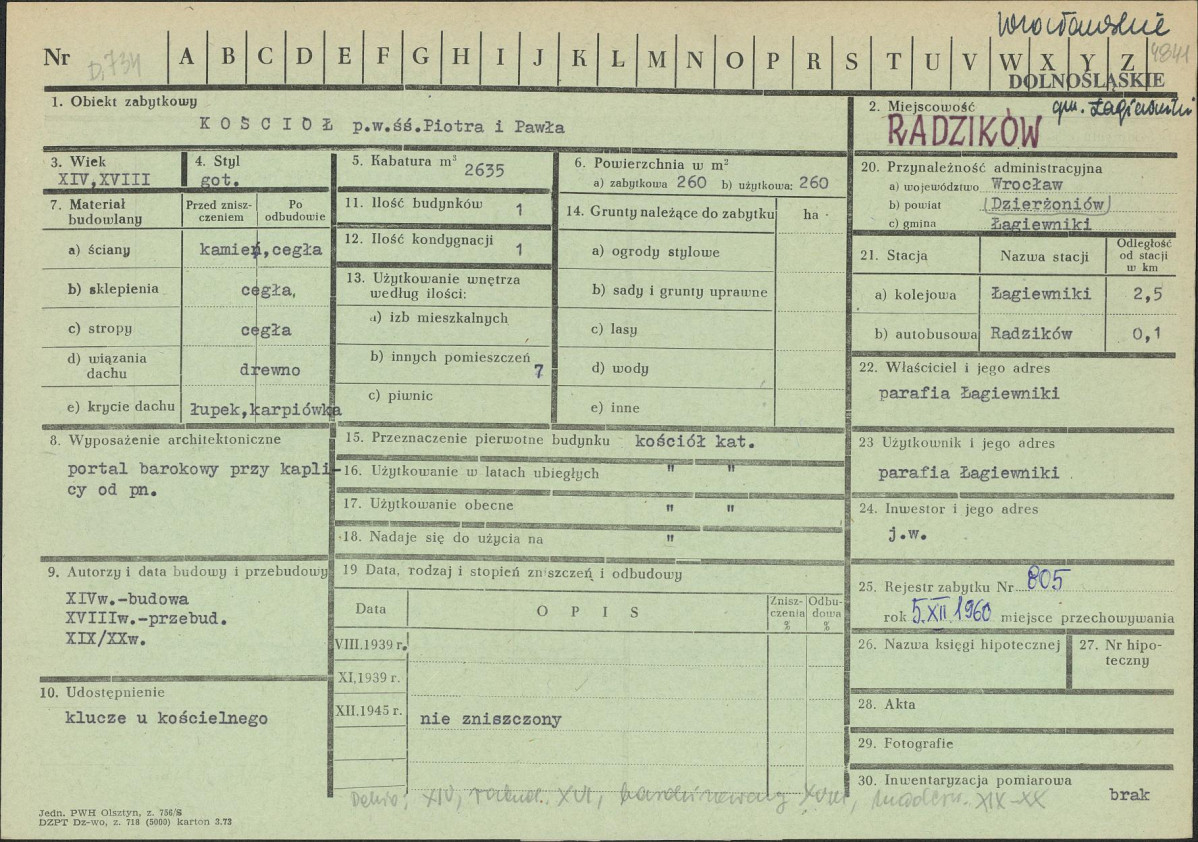 Wrocławskie
Nr D.734 A B C D E F G H I J K L M N O P R S T U V W X Y Z 4841
DOLNOŚLĄSKIE
1. Obiekt zabytkowy
KOŚCIOŁ p.w.śś.Piotra i Pawła
2. Miejscowość gm. Łagiewniki
RADZIKÓW
3. Wiek
XIV,XVIII
4. Styl
got.
5. Kabatura m³
2635
6. Powierzchnia w m²
a) zabytkowa 260 b) użytkowa: 260
7. Materiał budowlany
Przed znisz-
czeniem
Po
odbudowie
a) ściany kamień,cegła
b) sklepienia cegła,
c) stropy cegła
d) wiązania
dachu drewno
e) krycie dachu łupek,karpiówka
11. Ilość budynków 1
12. Ilość kondygnacji
1
13. Użytkowanie wnętrza
według ilości:
a) izb mieszkalnych
b) innych pomieszczeń
7
c) piwnic
14. Grunty należące do zabytku ha
a) ogrody stylowe
b) sady i grunty uprawne
c) lasy
d) wody
e) inne
20. Przynależność administracyjna
a) województwo Wrocław
b) powiat (Dzierżoniów)
c) gmina Łagiewniki
21. Stacja Nazwa stacji
Odległość
od stacji
w km
a) kolejowa Łagiewniki 2,5
b) autobusowa Radzików 0,1
22. Właściciel i jego adres
parafia Łagiewniki
23 Użytkownik i jego adres
parafia Łagiewniki
24. Inwestor i jego adres
j.w.
25. Rejestr zabytku Nr 805
rok 5.XII.1960 miejsce przechowywania
26. Nazwa księgi hipotecznej
27. Nr hipo-
teczny
28. Akta
29. Fotografie
30. Inwentaryzacja pomiarowa
brak
8. Wyposażenie architektoniczne
portal barokowy przy kapli-
cy od pn.
9. Autorzy i data budowy i przebudowy
XIVw.-budowa
XVIIIw.-przebud.
XIX/XXw.
10. Udostępnienie
klucze u kościelnego
15. Przeznaczenie pierwotne budynku kościół kat.
16. Użytkowanie w latach ubiegłych " "
17. Użytkowanie obecne " "
18. Nadaje się do użycia na "
19 Data, rodzaj i stopień zniszczeń i odbudowy
Data OPIS
Znisz-
czenia
%
Odbu-
dowa
%
VIII.1939 r.
XI.1939 r.
XII.1945 r. nie zniszczony
XIV, XVI, XVIII, XIX-XX
Jedn. PWH Olsztyn, z. 756/S
DZPT Dz-wo, z. 718 (5000) karton 3.73